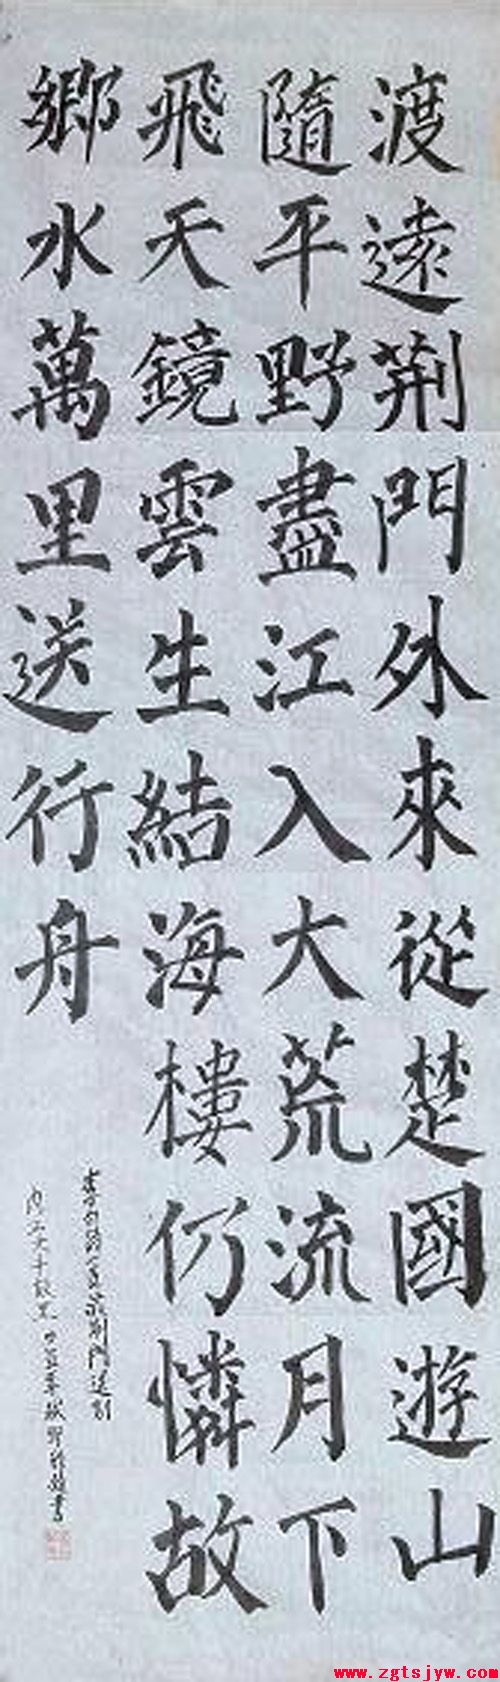 渡遠荆門外來從楚國遊山
隨平野盡江入大荒流月下
飛天鏡雲生結海樓仍憐故
鄉水萬里送行舟
荆門送别
書
www.zgtsjyw.com